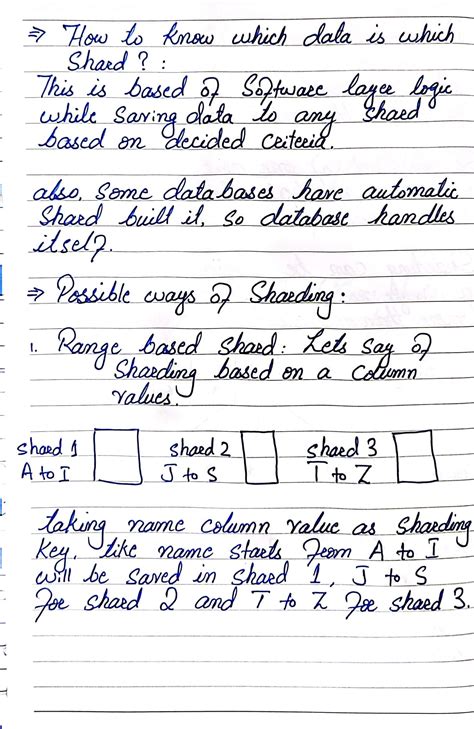 ⇒ How to know which data is which
Shard ? :
This is based of Software layer logic
while saving data to any shard
based on decided criteria.
also, some databases have automatic
Shard built it, so database handles
itself.
⇒ Possible ways of Sharding:
1. Range based shard: Lets say of
Sharding based on a column
values.
shard 1 shard 2 shard 3
A to I J to S T to Z
taking name column value as sharding
key, like name starts from A to I
will be saved in shard 1, J to S
for shard 2 and T to Z for shard 3.